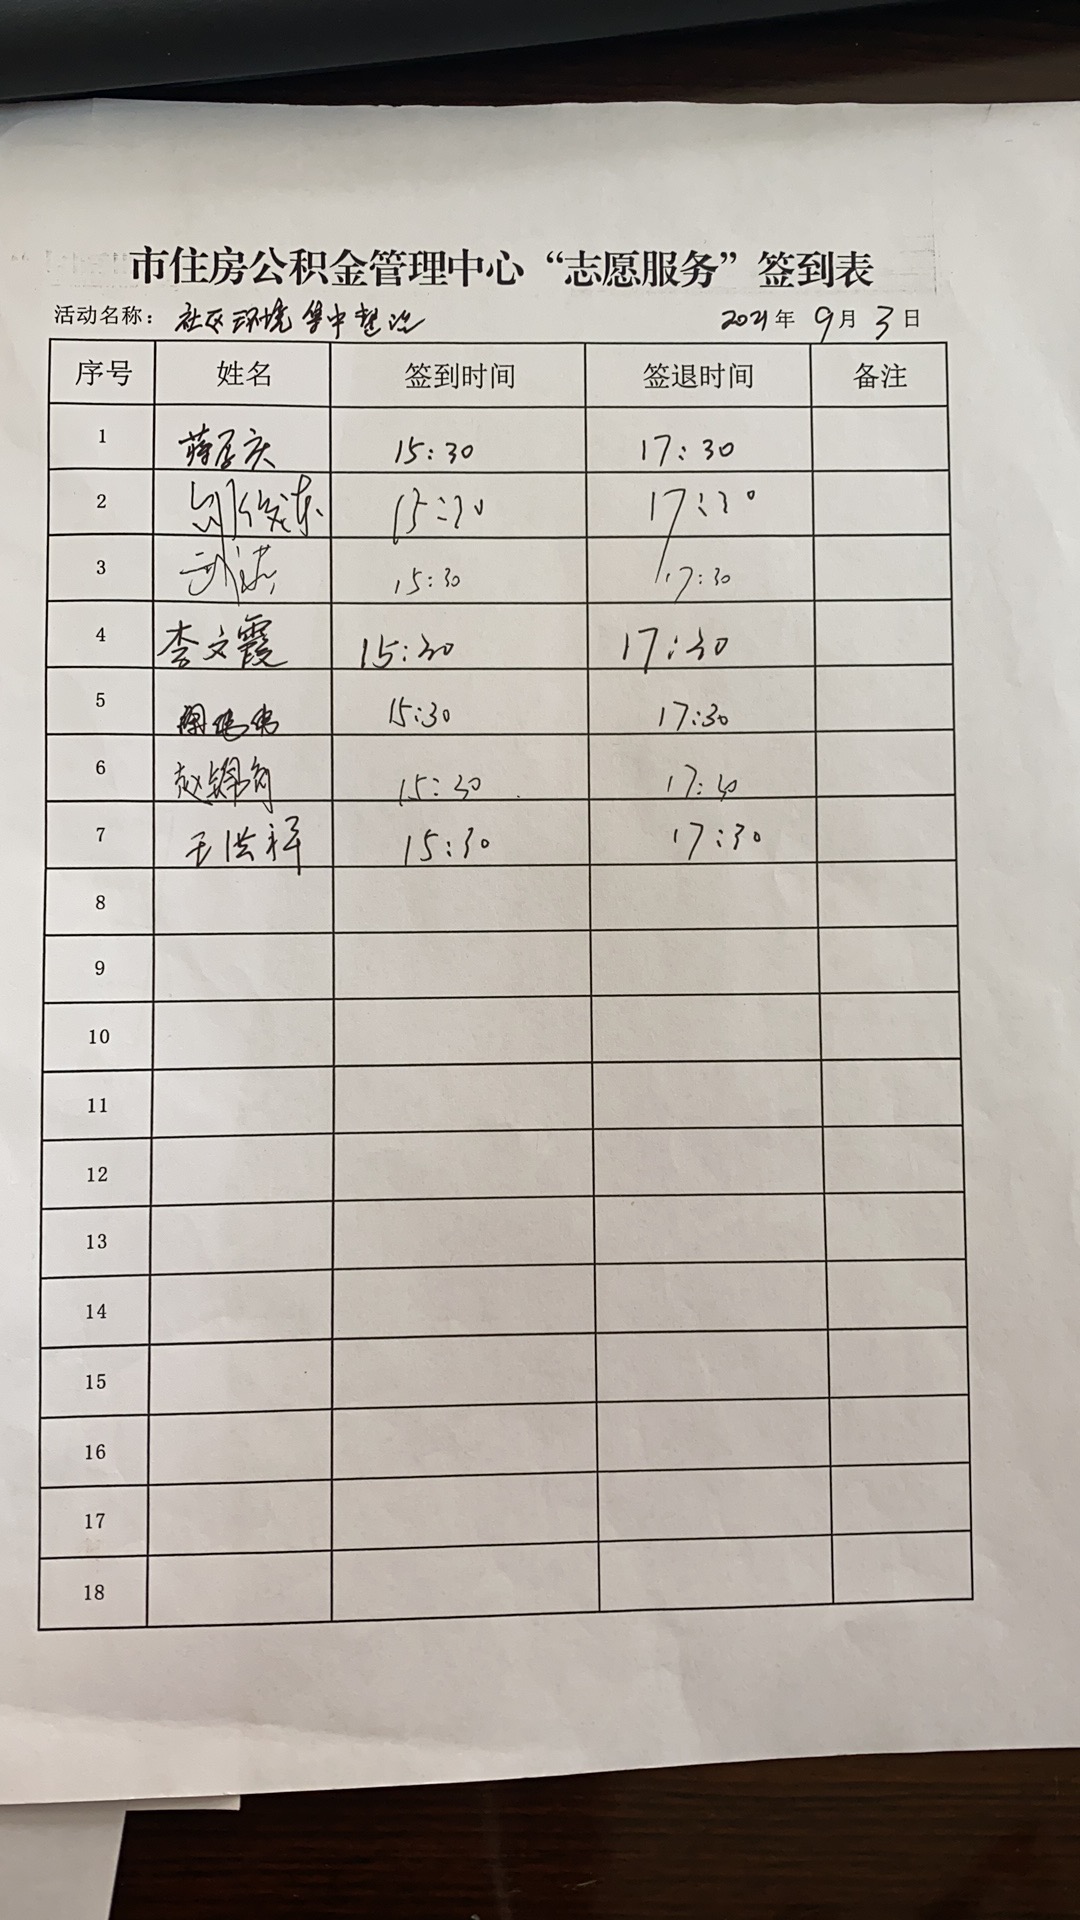 市住房公积金管理中心“志愿服务”签到表
活动名称：社区环境集中整治 2021年 9月 3日
序号 姓名 签到时间 签退时间 备注
1 蒋孟庆 15:30 17:30
2 15:30 17:30
3 15:30 17:30
4 李文霞 15:30 17:30
5 15:30 17:30
6 赵 15:30 17:30
7 王洪祥 15:30 17:30
8
9
10
11
12
13
14
15
16
17
18